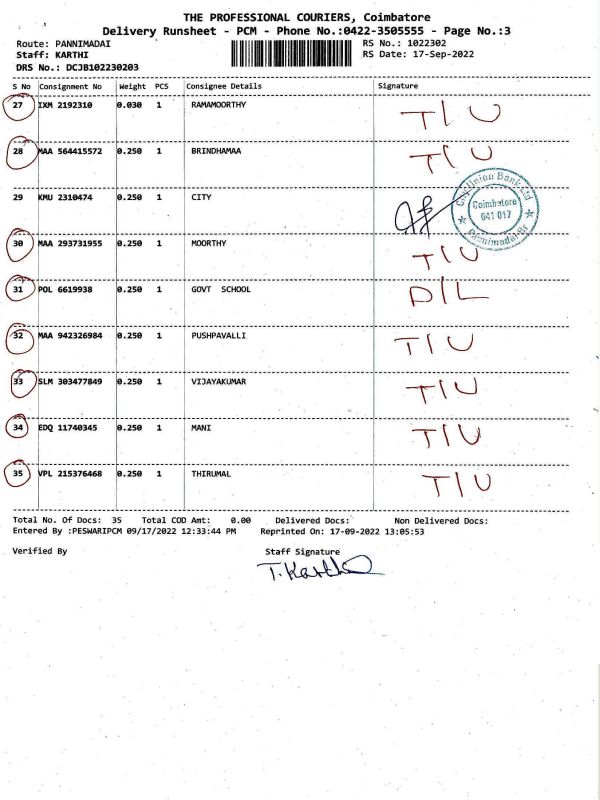 THE PROFESSIONAL COURIERS, Coimbatore
Delivery Runsheet - PCM - Phone No.:0422-3505555 - Page No.:3
Route: PANNIMADAI RS No.: 1022302
Staff: KARTHI RS Date: 17-Sep-2022
DRS No.: DCJB102230203
S No Consignment No Weight PCS Consignee Details Signature
27 IXM 2192310 0.030 1 RAMAMOORTHY T/U
28 MAA 564415572 0.250 1 BRINDHAMAA T/U
29 KMU 2310474 0.250 1 CITY
City Union Bank Ltd
Coimbatore
641 017
Pannimadai Br
30 MAA 293731955 0.250 1 MOORTHY T/U
31 POL 6619938 0.250 1 GOVT SCHOOL D/L
32 MAA 942326984 0.250 1 PUSHPAVALLI T/U
33 SLM 303477849 0.250 1 VIJAYAKUMAR T/U
34 EDQ 11740345 0.250 1 MANI T/U
35 VPL 215376468 0.250 1 THIRUMAL T/U
Total No. Of Docs: 35 Total COD Amt: 0.00 Delivered Docs: Non Delivered Docs:
Entered By :PESWARIPCM 09/17/2022 12:33:44 PM Reprinted On: 17-09-2022 13:05:53
Verified By Staff Signature
T. Karthi